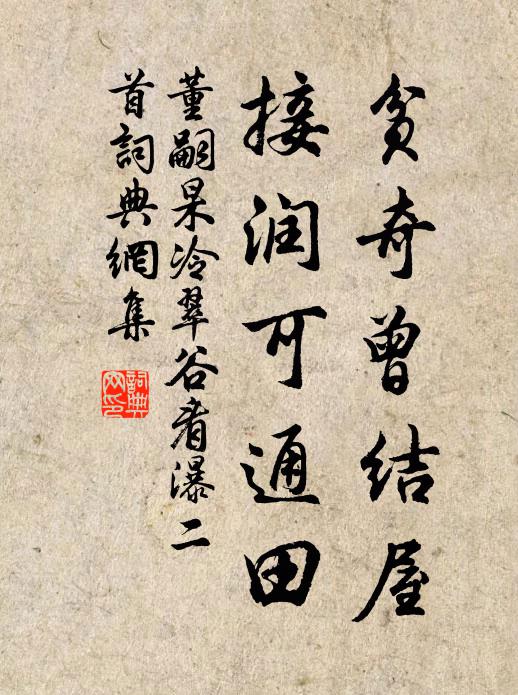 贪奇曾结屋
接润可通田
董嗣杲冷翠谷看瀑二
首词典網集
詞典网印